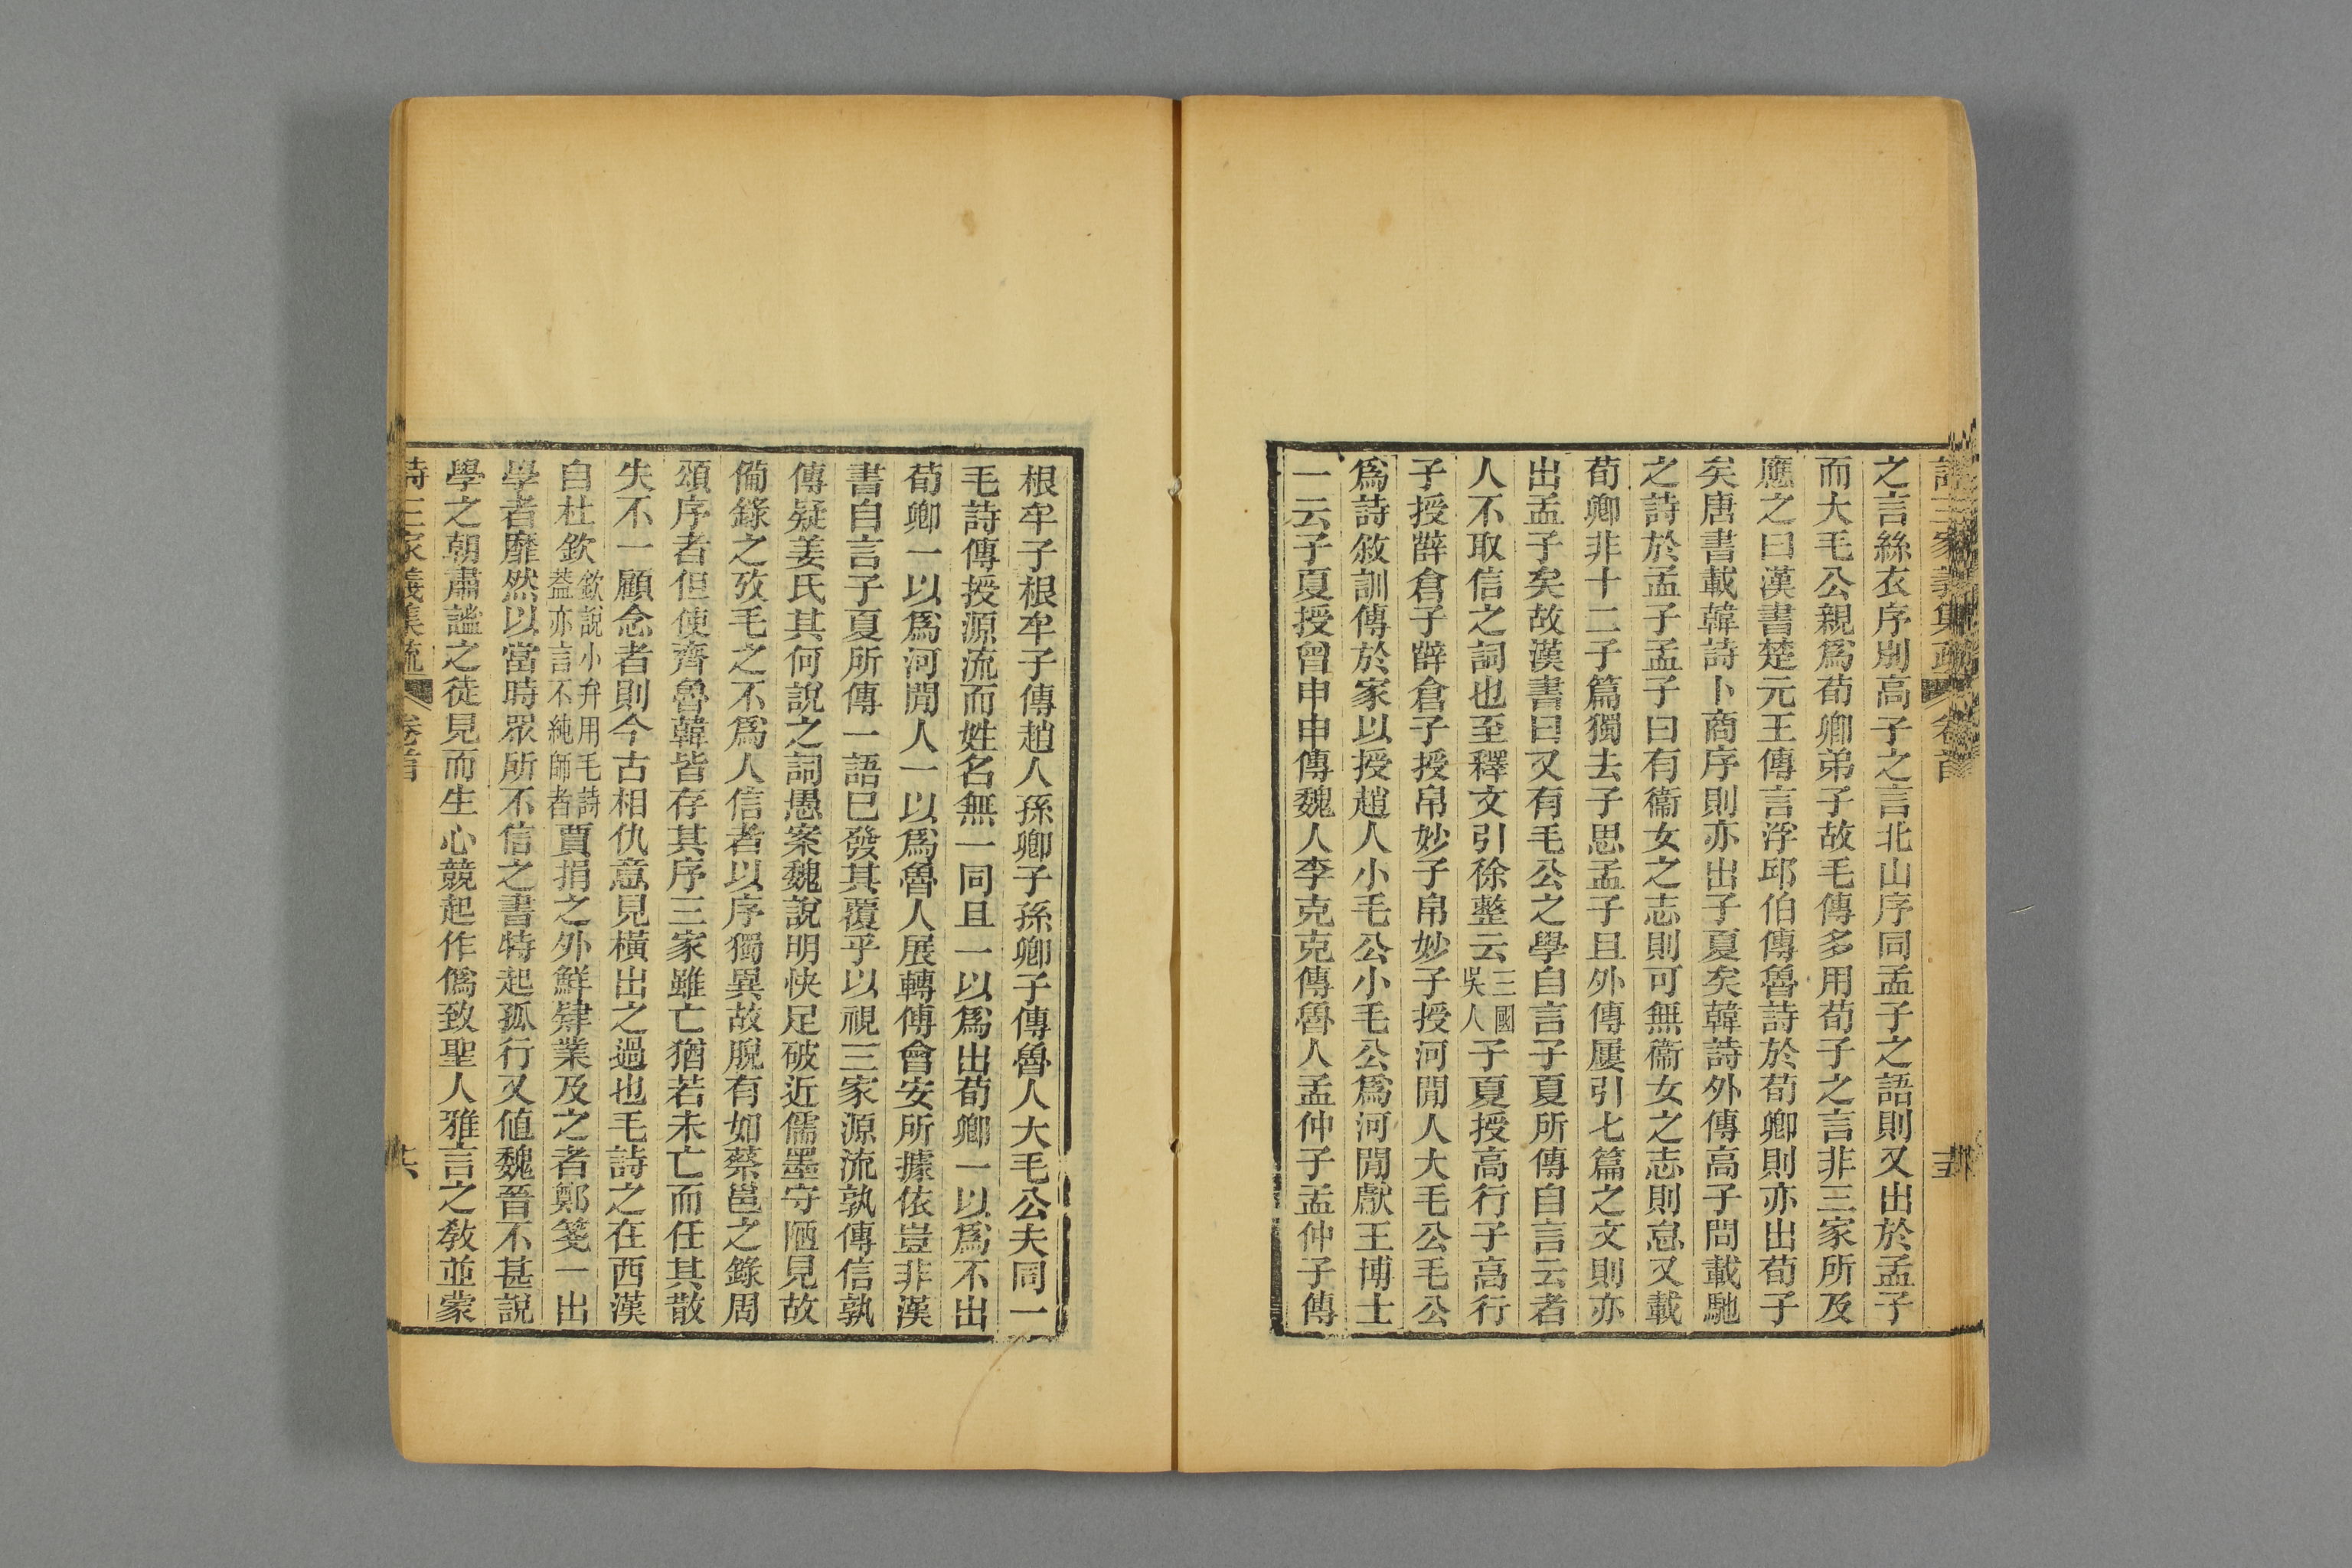 詩三家義集疏 卷首 十五
之言絲衣序別高子之言北山序同孟子之語則又出於孟子
而大毛公親爲荀卿弟子故毛傳多用荀子之言非三家所及
應之曰漢書楚元王傳言浮邱伯傳魯詩於荀卿則亦出荀子
矣唐書載韓詩卜商序則亦出子夏矣韓詩外傳高子問載馳
之詩於孟子孟子曰有衞女之志則可無衞女之志則怠又載
荀卿非十二子篇獨去子思孟子且外傳屢引七篇之文則亦
出孟子矣故漢書曰又有毛公之學自言子夏所傳自言云者
人不取信之詞也至釋文引徐整云三國吳人子夏授高行子高行
子授薛倉子薛倉子授帛妙子帛妙子授河閒人大毛公毛公
爲詩故訓傳於家以授趙人小毛公小毛公爲河閒獻王博士
一云子夏授曾申申傳魏人李克克傳魯人孟仲子孟仲子傳
根牟子根牟子傳趙人孫卿子孫卿子傳魯人大毛公夫同一
毛詩傳授源流而姓名無一同且一以爲出荀卿一以爲不出
荀卿一以爲河閒人一以爲魯人展轉傅會安所據依豈非漢
書自言子夏所傳一語已發其覆乎以視三家源流孰傳信孰
傳疑姜氏其何說之詞愚案魏說明快足破近儒墨守陋見故
僃錄之攷毛之不爲人信者以序獨異故脫有如蔡邕之錄周
頌序者但使齊魯韓皆存其序三家雖亡猶若未亡而任其散
失不一顧念者則今古相仇意見橫出之過也毛詩之在西漢
自杜欽欽說小弁用毛詩葢亦言不純師者賈捐之外鮮肄業及之者鄭箋一出
學者靡然以當時眾所不信之書特起孤行又値魏晉不甚說
學之朝肅謐之徒見而生心競起作僞致聖人雅言之敎並蒙
詩三家義集疏 卷首 十六